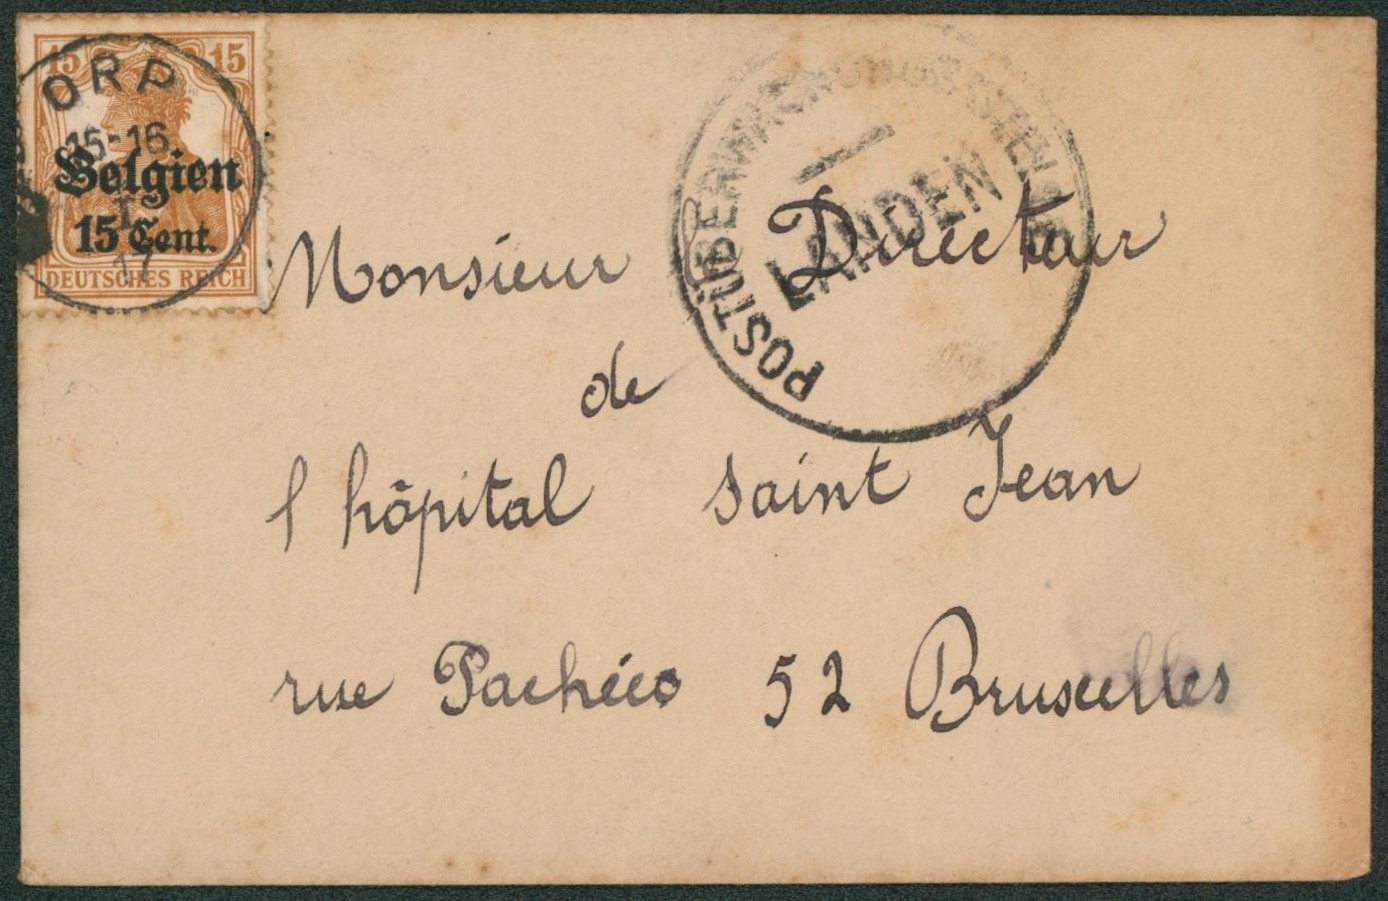 15 15
ORP
15-16
Belgien
15 Cent.
17
DEUTSCHES REICH
POSTÜBERWACHUNGSSTELLE
LANDEN
Monsieur Directeur
de
l hôpital saint Jean
rue Pachéco 52 Bruxelles